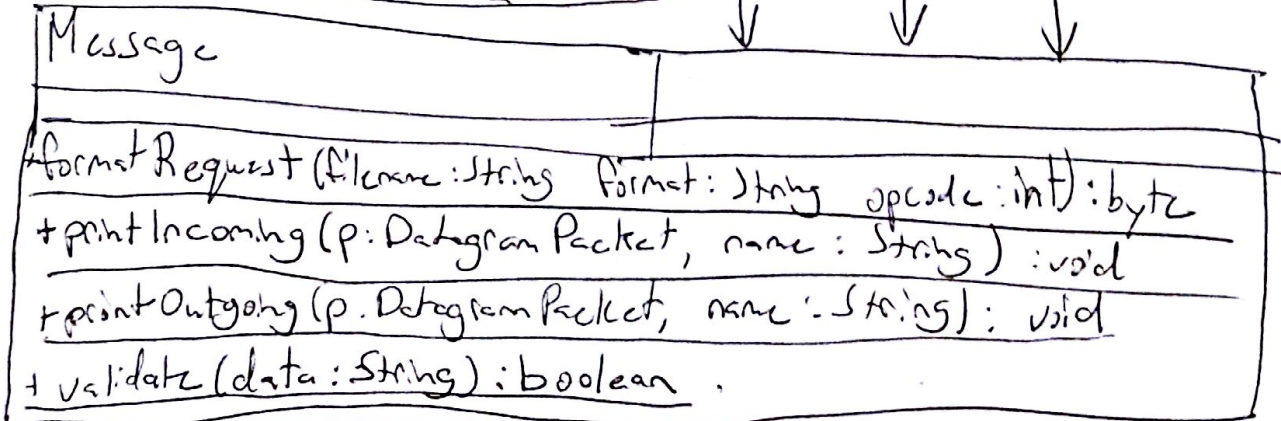 Message
+formatRequest(filename:String format:String opcode:int):byte
+printIncoming(p:DatagramPacket, name:String):void
+printOutgoing(p.DatagramPacket, name:String):void
+validate(data:String):boolean.